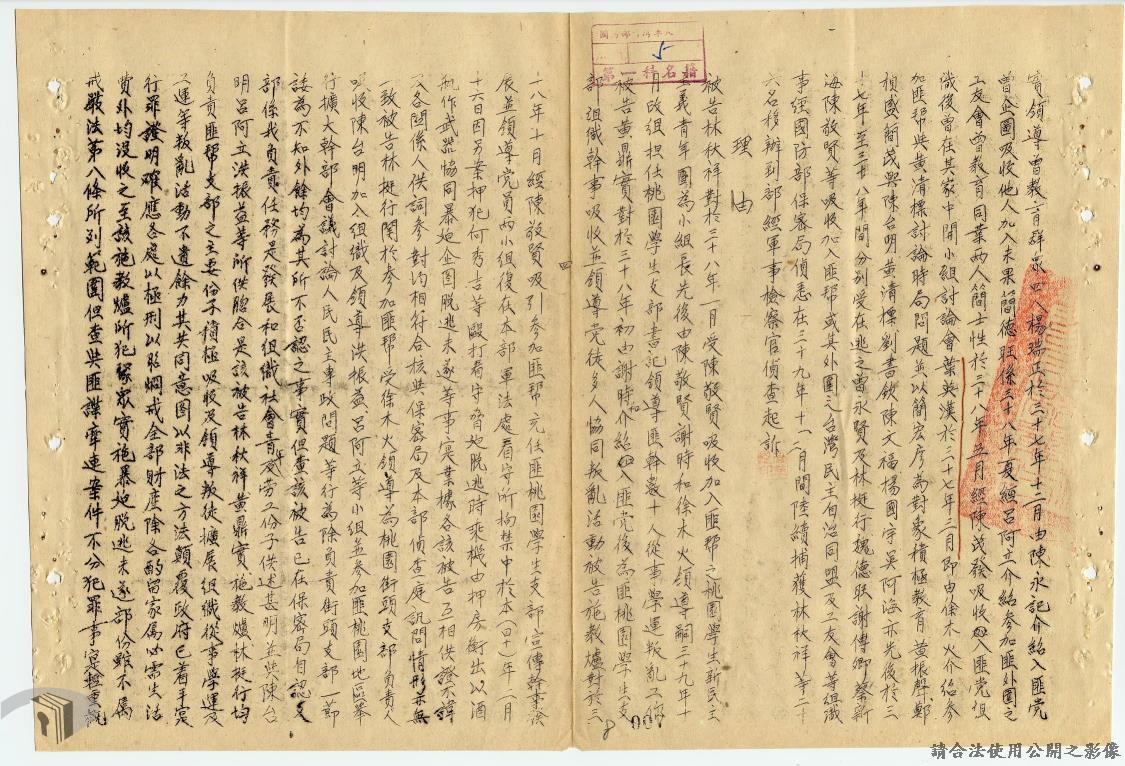 曾企圖吸收他人加入未果簡德旺係三十八年夏經呂阿立介紹參加匪外圍之
工友會曾教育同業兩人簡士性於三十八年五月經陳茂發吸收加入匪黨組
織後曾在其家中開小組討論會葉英漢於三十七年三月即由徐木火介紹參
加匪幫與黃清標討論時局問題並以簡宏彥為對象積極教育黃根聲鄭
楨盛簡茂興陳台明黃清標劉書欽陳文福楊國宇吳阿海亦先後於三
十七年至三十八年間分別受在逃之曾永賢及林挺行魏德旺謝傳卿蔡新
海陳敬賢等吸收加入匪幫或其外圍之台灣民主自治同盟及工友會等組織
事經國防部保密局偵悉在三十九年十一二月間陸續捕獲林秋祥等二十
六名移辦到部經軍事檢察官偵查起訴
理由
被告林秋祥對於三十八年一月受陳敬賢吸收加入匪幫之桃園學生新民主
主義青年團為小組長先後由陳敬賢謝時和徐木火領導嗣三十九年十
月改組担任桃園學生支部書記領導匪幹數十人從事學運叛亂工作
被告黃鼎實對於三十八年初由謝時和介紹加入匪黨後為匪桃園學生支
部組織幹事吸收並領導党徒多人協同叛亂活動被告施教爐對於三
十八年十月經陳敬賢吸引參加匪幫充任匪桃園學生支部宣傳幹事
展並領導党員兩小組後在本部軍法處看守所拘禁中於本(四十)年一月
十六日因另案押犯何秀吉等毆打看守脅迫脫逃時乘機由押房衝出以酒
瓶作武器協同暴迫企圖脫逃未遂等事實業據各該被告互相供證不諱
又各関係人供詞參對均相符合核與保密局及本部偵查庭訊問情形並無
致被告林挺行関於參加匪幫受徐木火領導為桃園街頭支部負責人
吸收陳台明加入組織及領導洪振益呂阿立等小組並參加匪桃園地區舉
行擴大幹部會議討論人民民主專政問題等行為除負責街頭支部一節
諉為不知外餘均為其所不否認之事實但查該被告已在保密局自認支
部係我負責任務是發展和組織社會青年及勞工份子供述甚明並與陳台
明呂阿立洪振益等所供脗合是該被告林秋祥黃鼎實施教爐林挺行均
負責匪幫支部之主要份子積極吸收及領導叛徒擴展組織從事學運及
工運等叛亂活動不遺餘力其共同意圖以非法之方法顛覆政府已着手實
行罪證明確應各處以極刑以昭烱戒全部財產除各酌留家屬必需生活
費外均沒收之至該施教爐所犯聚眾實施暴迫脫逃未遂部份雖不屬
戒嚴法第八條所列範圍但查與匪諜牽連案件不分犯罪事實輕重概
第一科名籍
007
8
四
請合法使用公開之影像